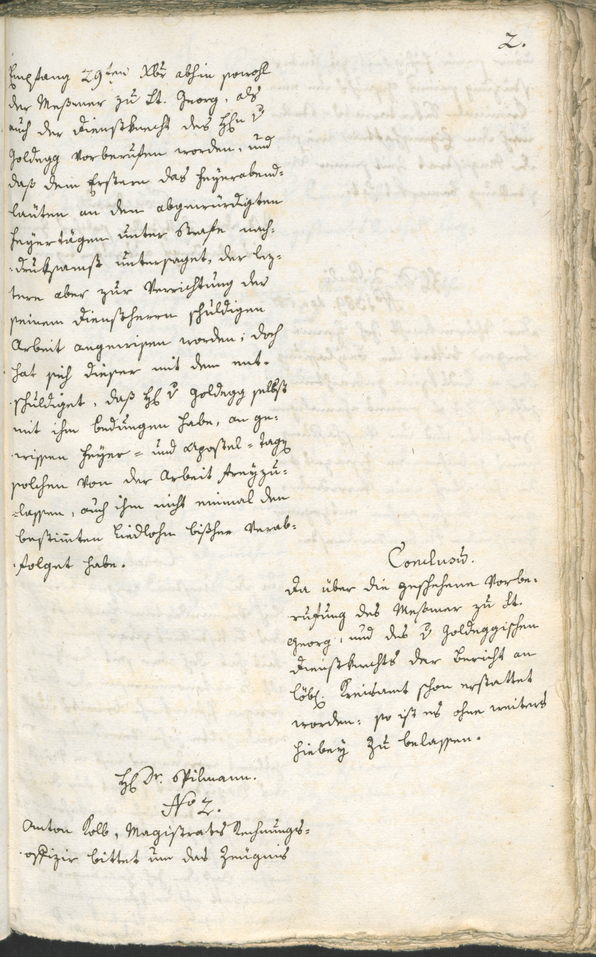 2.
Empfang 29ten Xbr abhin sowohl
der Meßmer zu St. Georg, als
auch der Dienstknecht des H. v
Goldegg vorberufen worden, und
daß dem Erstern das Feyerabend-
läuten an den abgewürdigten
Feyertägen unter Strafe nach-
druksamst untersaget, der lez-
tere aber zur Verrichtung der
seinem Dienstherrn schuldigen
Arbeit angewisen worden; doch
hat sich dieser mit dem ent-
schuldiget, daß H v Goldegg selbst
mit ihm bedungen habe, an ge-
wissen Feyer- und Apostel-Tagen
solchen von der Arbeit freyzu-
lassen, auch ihm nicht einmal den
bestimten Liedlohn bißher verab-
folget habe.
Conclusum.
Da über die geschehene Vorbe-
rufung des Meßmer zu St.
Georg, und des v Goldeggischen
Dienstknechts der Bericht an
löbl. Kreisamt schon erstattet
worden: so ist es ohne weiters
hiebey zu belassen.
H Dr. Spilmann.
No 2.
Anton Kolb, Magistrats Rechnungs-
offizir bittet um das Zeugnis